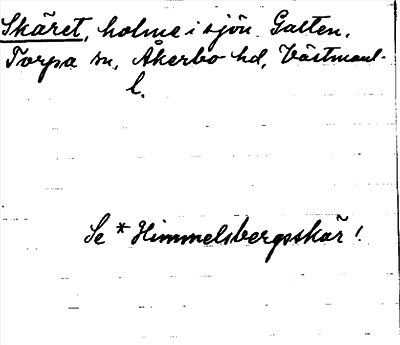 Skäret, holme i sjön Galten,
Torpa sn, Åkerbo hd, Västmanl.
l.
Se * Himmelsbergsskär!